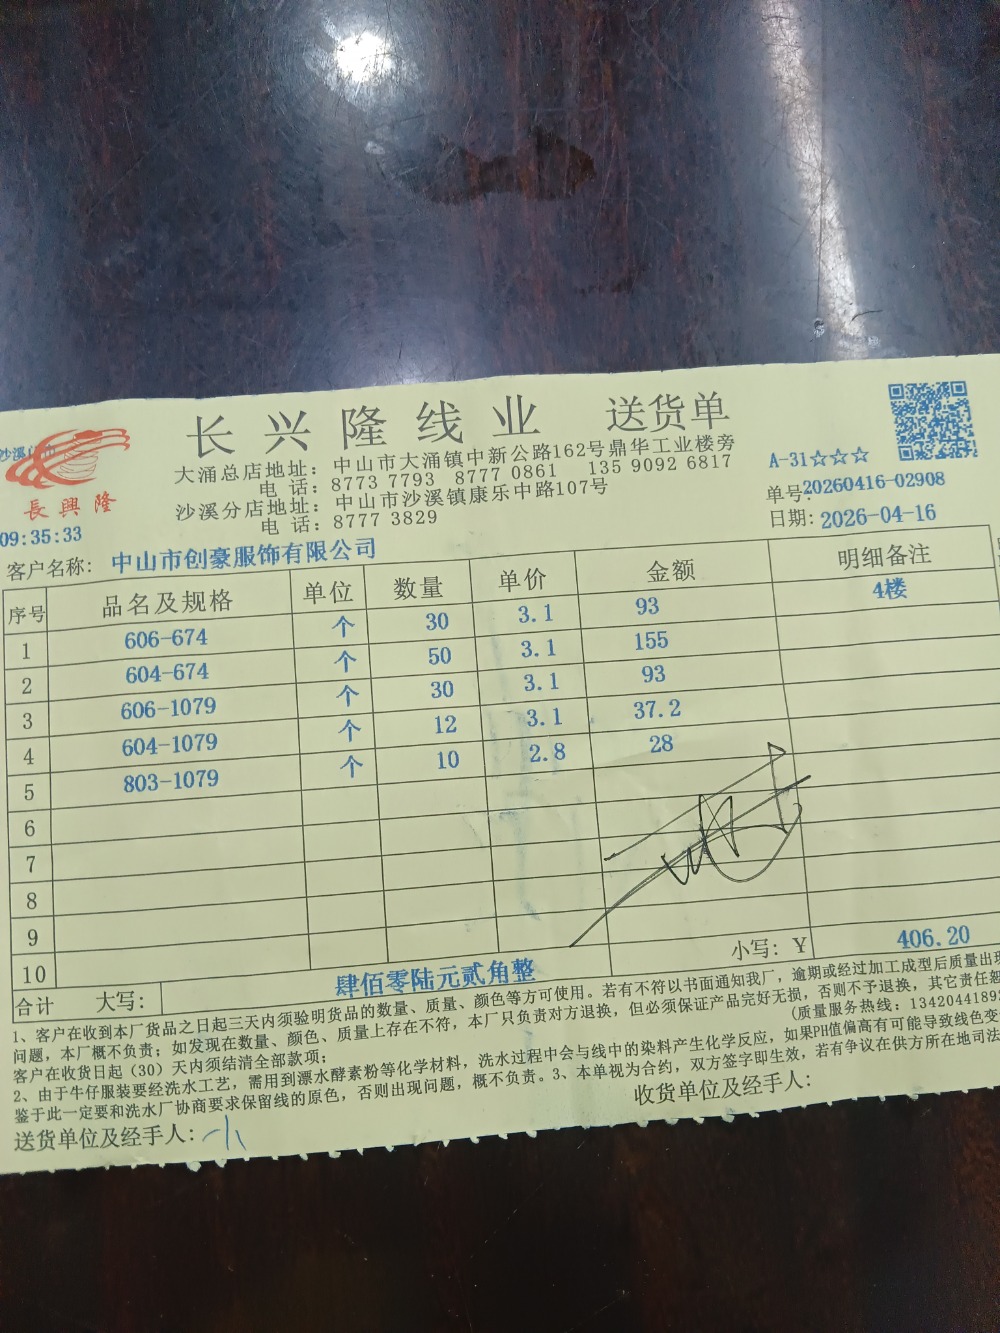 长兴隆线业 送货单
長興隆
大涌总店地址：中山市大涌镇中新公路162号鼎华工业楼旁
电 话：8773 7793 8777 0861 135 9092 6817
沙溪分店地址：中山市沙溪镇康乐中路107号
电 话：8777 3829
A-31☆☆☆
单号:20260416-02908
日期: 2026-04-16
09:35:33
客户名称: 中山市创豪服饰有限公司
序号 品名及规格 单位 数量 单价 金额 明细备注
1 606-674 个 30 3.1 93 4楼
2 604-674 个 50 3.1 155
3 606-1079 个 30 3.1 93
4 604-1079 个 12 3.1 37.2
5 803-1079 个 10 2.8 28
6
7
8
9
10
合计 大写: 肆佰零陆元贰角整 小写: ¥ 406.20
1、客户在收到本厂货品之日起三天内须验明货品的数量、质量、颜色等方可使用。若有不符以书面通知我厂，逾期或经过加工成型后质量出现
问题，本厂概不负责；如发现在数量、颜色、质量上存在不符，本厂只负责对方退换，但必须保证产品完好无损，否则不予退换，其它责任
客户在收货日起（30）天内须结清全部款项； (质量服务热线: 1342044189
2、由于牛仔服装要经洗水工艺，需用到漂水酵素粉等化学材料，洗水过程中会与线中的染料产生化学反应，如果PH值偏高有可能导致线色变
鉴于此一定要和洗水厂协商要求保留线的原色，否则出现问题，概不负责。3、本单视为合约，双方签字即生效，若有争议在供方所在地司法
送货单位及经手人: 小 收货单位及经手人: